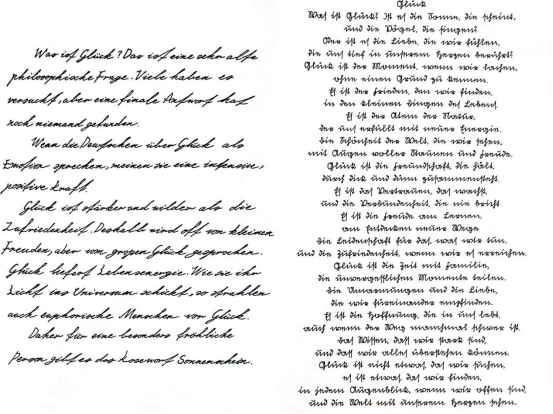 Was ist Glück? Das ist eine sehr alte
philosophische Frage. Viele haben es
versucht, aber eine finale Antwort hat
noch niemand gefunden.
Wenn die Deutschen über Glück als
Emotion sprechen, meinen sie eine intensive,
positive Kraft.
Glück ist stärker und wilder als die
Zufriedenheit. Deshalb wird oft von kleinen
Freuden, aber von großem Glück gesprochen.
Glück liefert Lebensenergie. Wie sie ihr
Licht ins Universum schickt, so strahlen
auch euphorische Menschen vor Glück.
Daher für eine besonders fröhliche
Person gibt es das Kosewort Sonnenschein.
Glück
Was ist Glück? Ist es die Sonne, die scheint,
und die Vögel, die singen?
Oder ist es die Liebe, die wir fühlen,
die uns tief in unserem Herzen berührt?
Glück ist der Moment, wenn wir lachen,
ohne einen Grund zu kennen.
Es ist der Frieden, den wir finden,
in den kleinen Dingen des Lebens.
Es ist der Atem der Natur,
der uns erfüllt mit neuer Energie.
Die Schönheit der Welt, die wir sehen,
mit Augen voller Staunen und Freude.
Glück ist die Freundschaft, die hält,
durch dick und dünn zusammensteht.
Es ist das Vertrauen, das wächst
und die Verbundenheit, die nie bricht
Es ist die Freude am Lernen,
am Entdecken neuer Wege
Die Leidenschaft für das, was wir tun,
und die Zufriedenheit, wenn wir es erreichen.
Glück ist die Zeit mit Familie,
die unvergesslichen Momente teilen.
Die Umarmungen und die Liebe,
die wir füreinander empfinden.
Es ist die Hoffnung, die in uns lebt,
auch wenn der Weg manchmal schwer ist.
Das Wissen, dass wir stark sind,
und dass wir alles überstehen können.
Glück ist nicht etwas, das wir suchen,
es ist etwas, das wir finden,
in jedem Augenblick, wenn wir offen sind,
und die Welt mit unserem Herzen sehen.